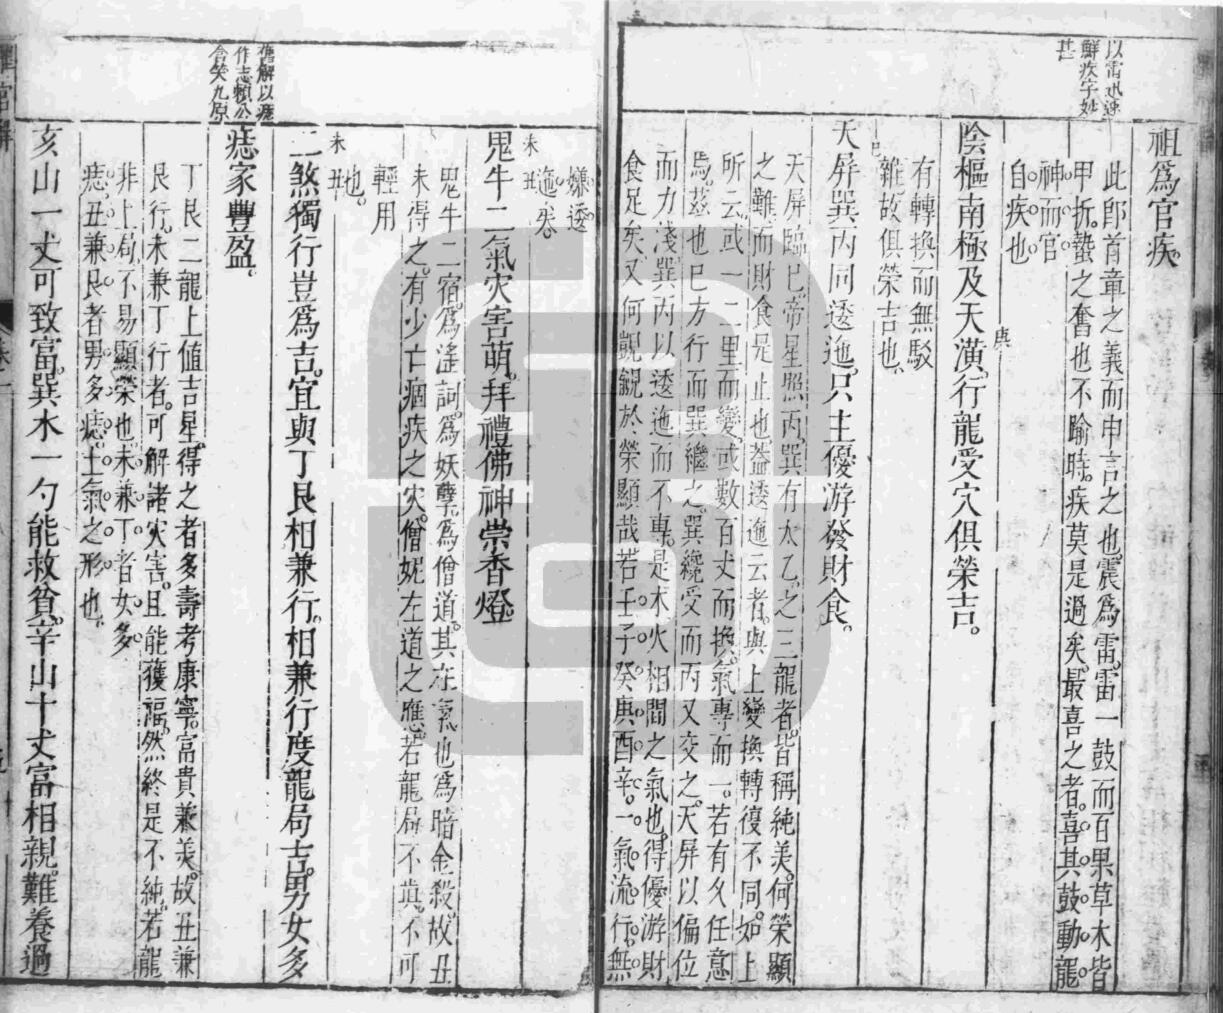 以雷迅速
解疾字妙
甚
祖爲官疾。
此即首章之義而申言之也。震爲雷。雷一鼓而百果草木皆
甲折。蟄之奮也不踰時。疾莫是過矣。最喜之者。喜其鼓動龍
神而官
自疾也
陰樞南極及天潢。行龍受穴俱榮吉。
庚
有轉換而無駁
雜故俱榮吉也
天屏巽丙同逶迤。只主優游發財食。
巳
天屏臨巳。帝星照丙。巽有太乙。之三龍者。皆稱純美。何榮顯
之難。而財食是止也。蓋逶迤云者。與上變換轉復不同。如上
所云。或一二里而變。或數百丈而換。氣專而一。若有久任意
焉。茲也巳方行而巽繼之。巽纔受而丙又交之。天屏以偏位
而力淺。巽丙以逶迤而不專。是木火相間之氣也。得優游財
食足矣。又何覬覦於榮顯哉。若壬子癸庚酉辛。一氣流行。無
嫌逶
迤矣。
鬼牛二氣灾害萌。拜禮佛神崇香燈。
未
丑
鬼牛二宿。爲淫詞。爲妖孽。爲僧道。其在氣也。爲暗金殺。故丑
未得之。有少亡痼疾之灾。僧妮左道之應。若龍局不眞。不可
輕用
也。
二煞獨行豈爲吉。宜與丁艮相兼行。相兼行度龍局吉。男女多
未
丑
痣家豐盈。
舊解以痣
作志賴公
含笑九原
丁艮二龍上値吉星。得之者多壽考康寧。富貴兼美。故丑兼
艮行。未兼丁行者。可解諸灾害。且能獲福。然終是不純。若龍
非上局。不易顯榮也。未兼丁者女多
痣。丑兼艮者男多痣。土氣之形也。
亥山一丈可致富。巽水一勺能救貧。辛山十丈富相親。難養過